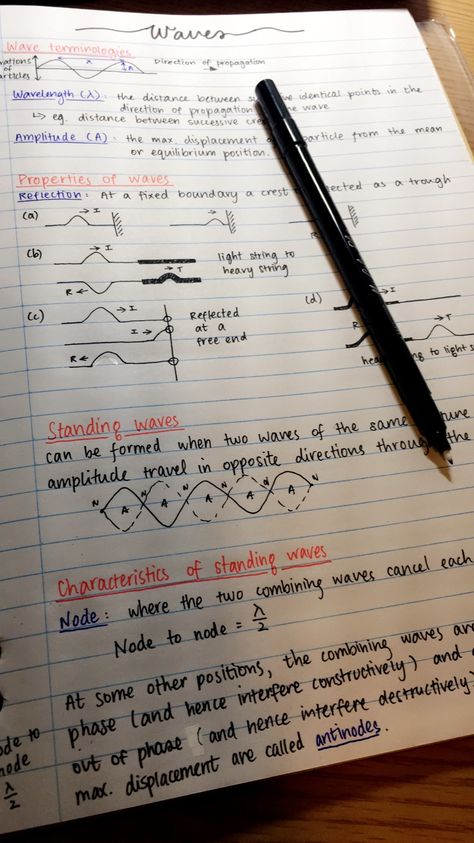 Waves
Wave terminologies
Direction of propagation
of
Wavelength (λ) : the distance between identical points in the
direction of propagation the wave
↳ eg. distance between successive
Amplitude (A) : the max. displacement from the mean
or equilibrium position.
Properties of waves
Reflection : At a fixed boundary a crest as a trough
(a) → I
(b) → I light string to
heavy string
R ← → T
(c) → I Reflected
I → at a
R ← free end
(d)
R → T
to light
Standing waves
can be formed when two waves of the same
amplitude travel in opposite directions through the
N A N A N A N A N A N
Characteristics of standing waves
Node : where the two combining waves cancel each
Node to node = λ/2
At some other positions, the combining waves
phase (and hence interfere constructively) and
out of phase (and hence interfere destructively)
max. displacement are called antinodes.
to
λ/2